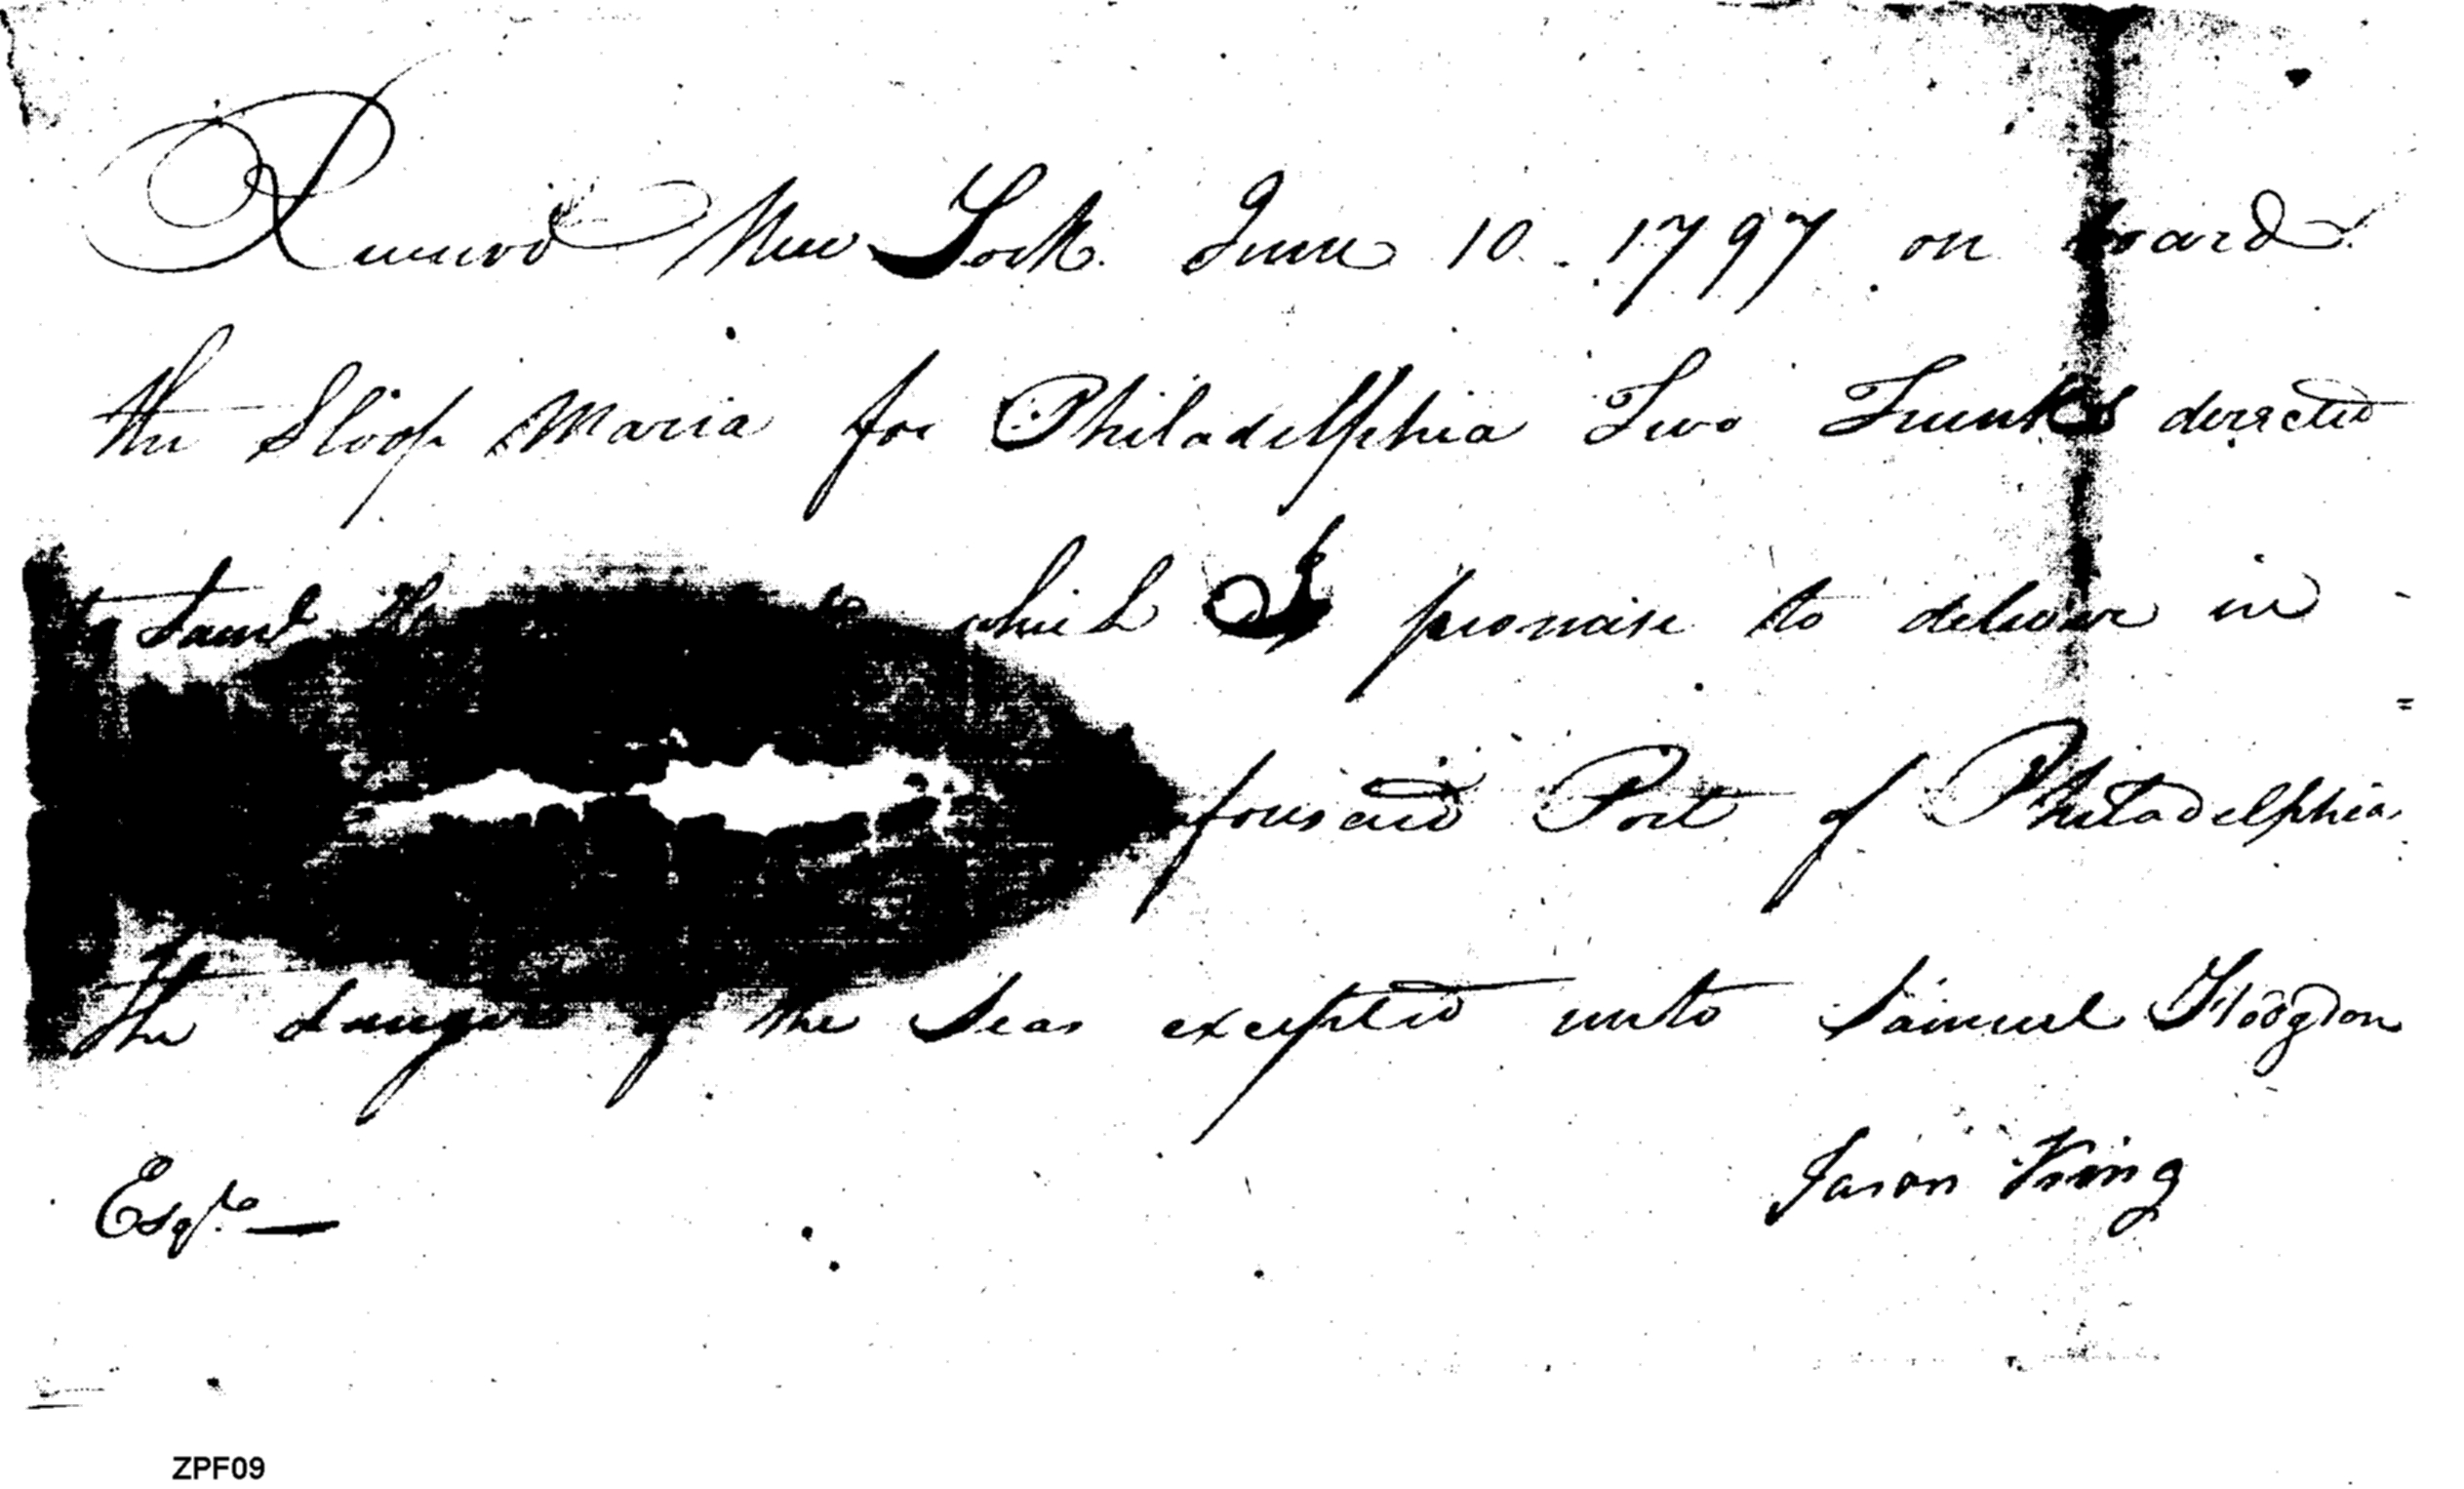 Received New York June 10. 1797 on board
the Sloop Maria for Philadelphia Two Trunks directed
which I promise to deliver in
foresaid Port of Philadelphia
the dangers of the Seas excepted unto Samuel Hodgdon
Esqre — Jason King
ZPF09